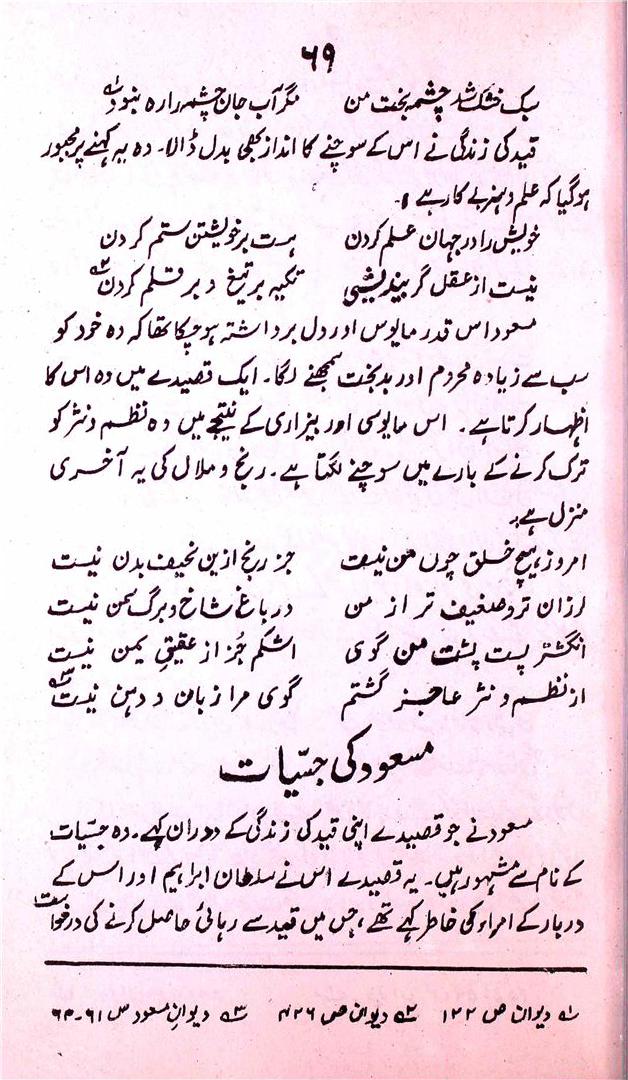 ۶۹
یک خشک شد چشمہ بخت من مگر آب جان چشمہ را رہ نبود؂۱
قید کی زندگی نے اس کے سوچنے کا انداز کلی بدل ڈالا۔ وہ یہ کہنے پر مجبور
ہوگیا کہ علم و ہنر بے کار ہے ۔
خویش را در جہان علم کردن ہست بر خویشتن ستم کردن
نیست از عقل گر بیندیشی تکیہ بر تیغ و بر قلم کردن؂۲
مسعود اس قدر مایوس اور دل برداشتہ ہوچکا تھا کہ وہ خود کو
سب سے زیادہ محروم اور بدبخت سمجھنے لگا۔ ایک قصیدے میں وہ اس کا
اظہار کرتا ہے۔ اس مایوسی اور بیزاری کے نتیجے میں وہ نظم و نثر کو
ترک کرنے کے بارے میں سوچنے لگتا ہے۔ رنج و ملال کی یہ آخری
منزل ہے۔
امروز ہیچ خلق چوں من نیست جز رنج ازین نحیف بدن نیست
لرزان تر و ضعیف تر از من در باغ شاخ و برگ سمن نیست
انگشتریست پشت من گوی اشکم جُز از عقیقِ یمن نیست
از نظم و نثر عاجز گشتم گوی مرا زبان و دہن نیست؂۳
مسعود کی حبسیّات
مسعود نے جو قصیدے اپنی قید کی زندگی کے دوران کہے۔ وہ حبسیّات
کے نام سے مشہور ہیں۔ یہ قصیدے اس نے سلطان ابراہیم اور اس کے
دربار کے امراء کی خاطر کہے تھے، جس میں قید سے رہائی حاصل کرنے کی درخواست
؂۱ دیوان ص ۱۲۲ ؂۲ دیوان ص ۴۲۶ ؂۳ دیوانِ مسعود ص ۶۱-۶۲